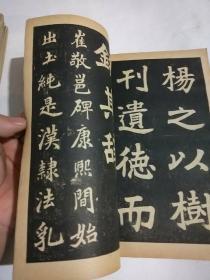 楊之以樹
刊遺德而
銘其辭
崔敬邕碑康熙間始
出玉純是漢隸法乳